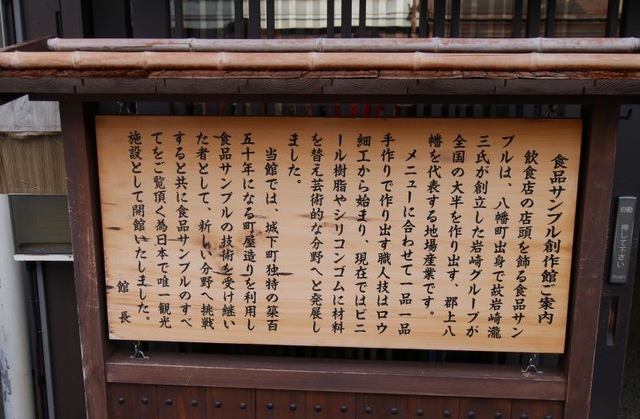 食品サンプル創作館ご案内
飲食店の店頭を飾る食品サン
プルは、八幡町出身で故岩崎瀧
三氏が創立した岩崎グループが
全国の大半を作り出す、郡上八
幡を代表する地場産業です。
メニューに合わせて一品一品
手作りで作り出す職人技はロウ
細工から始まり、現在ではビニ
ール樹脂やシリコンゴムに材料
を替え芸術的な分野へと発展し
ました。
当館では、城下町独特の築百
五十年になる町屋造りを利用し
食品サンプルの技術を受け継い
た者として、新しい分野へ挑戦
すると共に食品サンプルのすべ
てをご覧頂く為日本で唯一観光
施設として開館いたしました。
館長
押して下さい